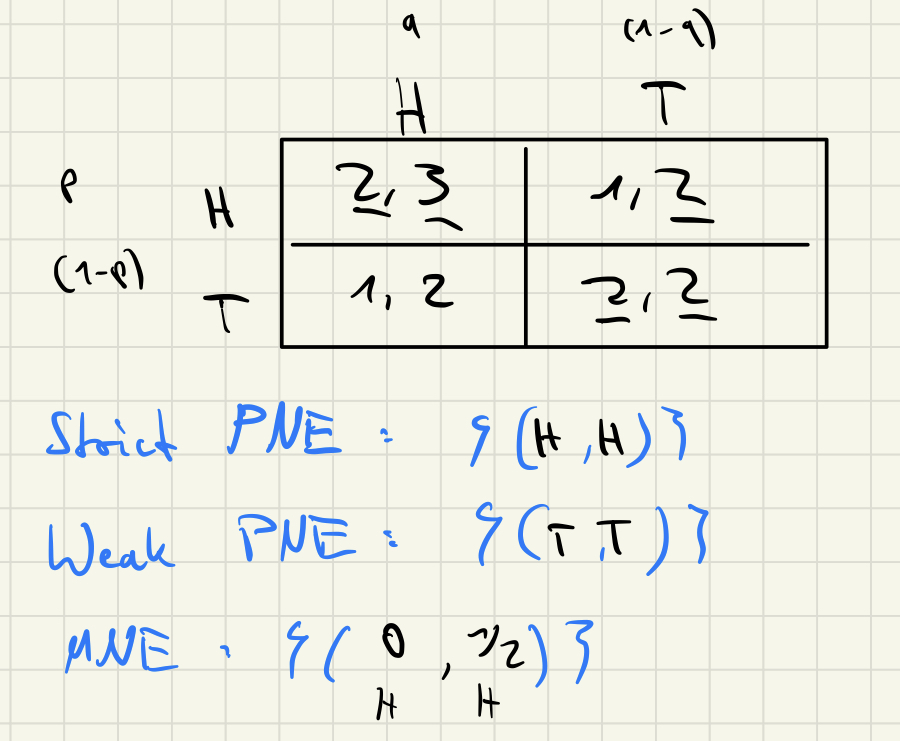 q (1-q)
H T
p H 2, 3 1, 2
(1-p) T 1, 2 2, 2
Strict PNE : {(H, H)}
Weak PNE : {(T, T)}
MNE : {(0, 1/2)}
H H